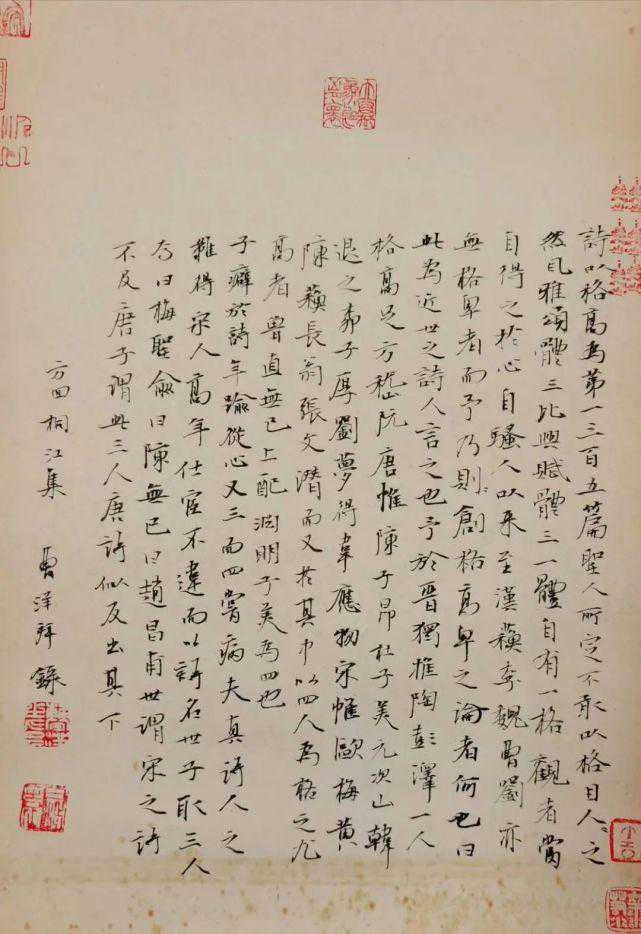 詩以格高為第一三百五篇聖人所定不敢以格目人之
然風雅頌體三比興賦體三一體自有一格觀者當
自得之於心自騷人以來至漢蘇李魏曹劉亦
無格卑者而予乃則創格高卑之論者何也曰
此為近世之詩人言之也予於晉獨推陶彭澤一人
格高足方嵇阮唐惟陳子昂杜子美元次山韓
退之柳子厚劉夢得韋應物宋惟歐梅黃
陳蘇長翁張文潛而又於其中以四人為格之尤
高者魯直無已上配淵明子美為四也
子癖於詩年踰從心又三而四嘗病夫真詩人之
難得宋人高年仕宦不達而以詩名世予取三人
焉曰梅聖俞曰陳無已曰趙昌甫世謂宋之詩
不及唐予謂此三人唐詩似反出其下
方回桐江集 曹澤拜錄